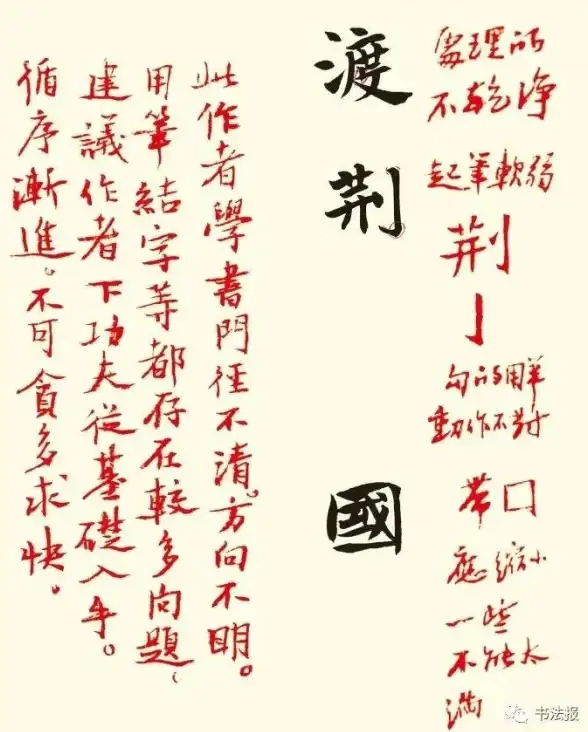 處理的
不乾淨
起筆軟弱
荆
亅
勾的用筆
動作不對
帶口
應縮小
一些
不能太
滿
渡
荆
國
此作者學書門徑不清。方向不明。
用筆結字等都存在較多问題、
建議作者下功夫從基礎入手。
循序漸進。不可貪多求快。
书法报